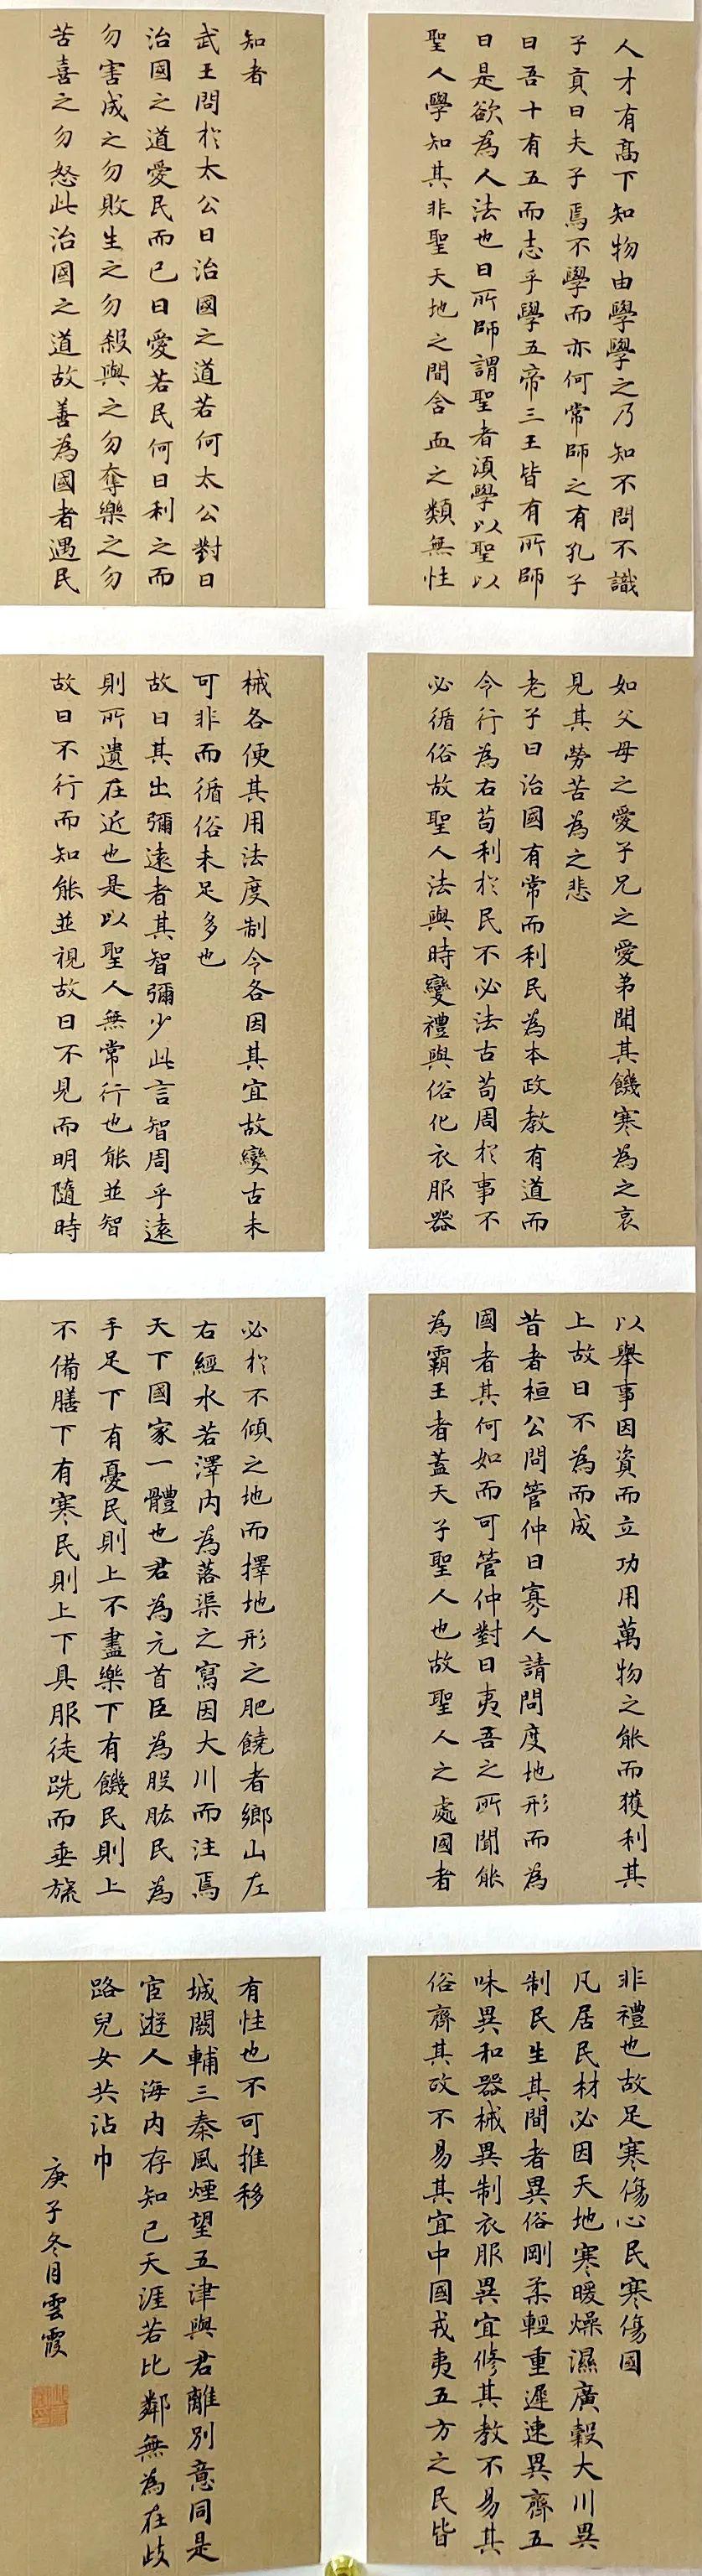 人才有高下知物由學學之乃知不問不識
子貢曰夫子焉不學而亦何常師之有孔子
曰吾十有五而志乎學五帝三王皆有所師
曰是欲為人法也曰所師謂聖者須學以聖以
聖人學知其非聖天地之間含血之類無性
知者
武王問於太公曰治國之道若何太公對曰
治國之道愛民而已曰愛若民何曰利之而
勿害成之勿敗生之勿殺與之勿奪樂之勿
苦喜之勿怒此治國之道故善為國者遇民
如父母之愛子兄之愛弟聞其饑寒為之哀
見其勞苦為之悲
老子曰治國有常而利民為本政教有道而
令行為右苟利於民不必法古苟周於事不
必循俗故聖人法與時變禮與俗化衣服器
械各便其用法度制令各因其宜故變古未
可非而循俗未足多也
故曰其出彌遠者其智彌少此言智周乎遠
則所遺在近也是以聖人無常行也能並智
故曰不行而知能並視故曰不見而明隨時
以舉事因資而立功用萬物之能而獲利其
上故曰不為而成
昔者桓公問管仲曰寡人請問度地形而為
國者其何如而可管仲對曰夷吾之所聞能
為霸王者蓋天子聖人也故聖人之處國者
必於不傾之地而擇地形之肥饒者鄉山左
右經水若澤內為落渠之寫因大川而注焉
天下國家一體也君為元首臣為股肱民為
手足下有憂民則上不盡樂下有饑民則上
不備膳下有寒民則上下具服徒跣而垂旒
非禮也故足寒傷心民寒傷國
凡居民材必因天地寒暖燥濕廣穀大川異
制民生其間者異俗剛柔輕重遲速異齊五
味異和器械異制衣服異宜修其教不易其
俗齊其政不易其宜中國戎夷五方之民皆
有性也不可推移
城闕輔三秦風煙望五津與君離別意同是
宦遊人海內存知己天涯若比鄰無為在歧
路兒女共沾巾
庚子冬月雲霞